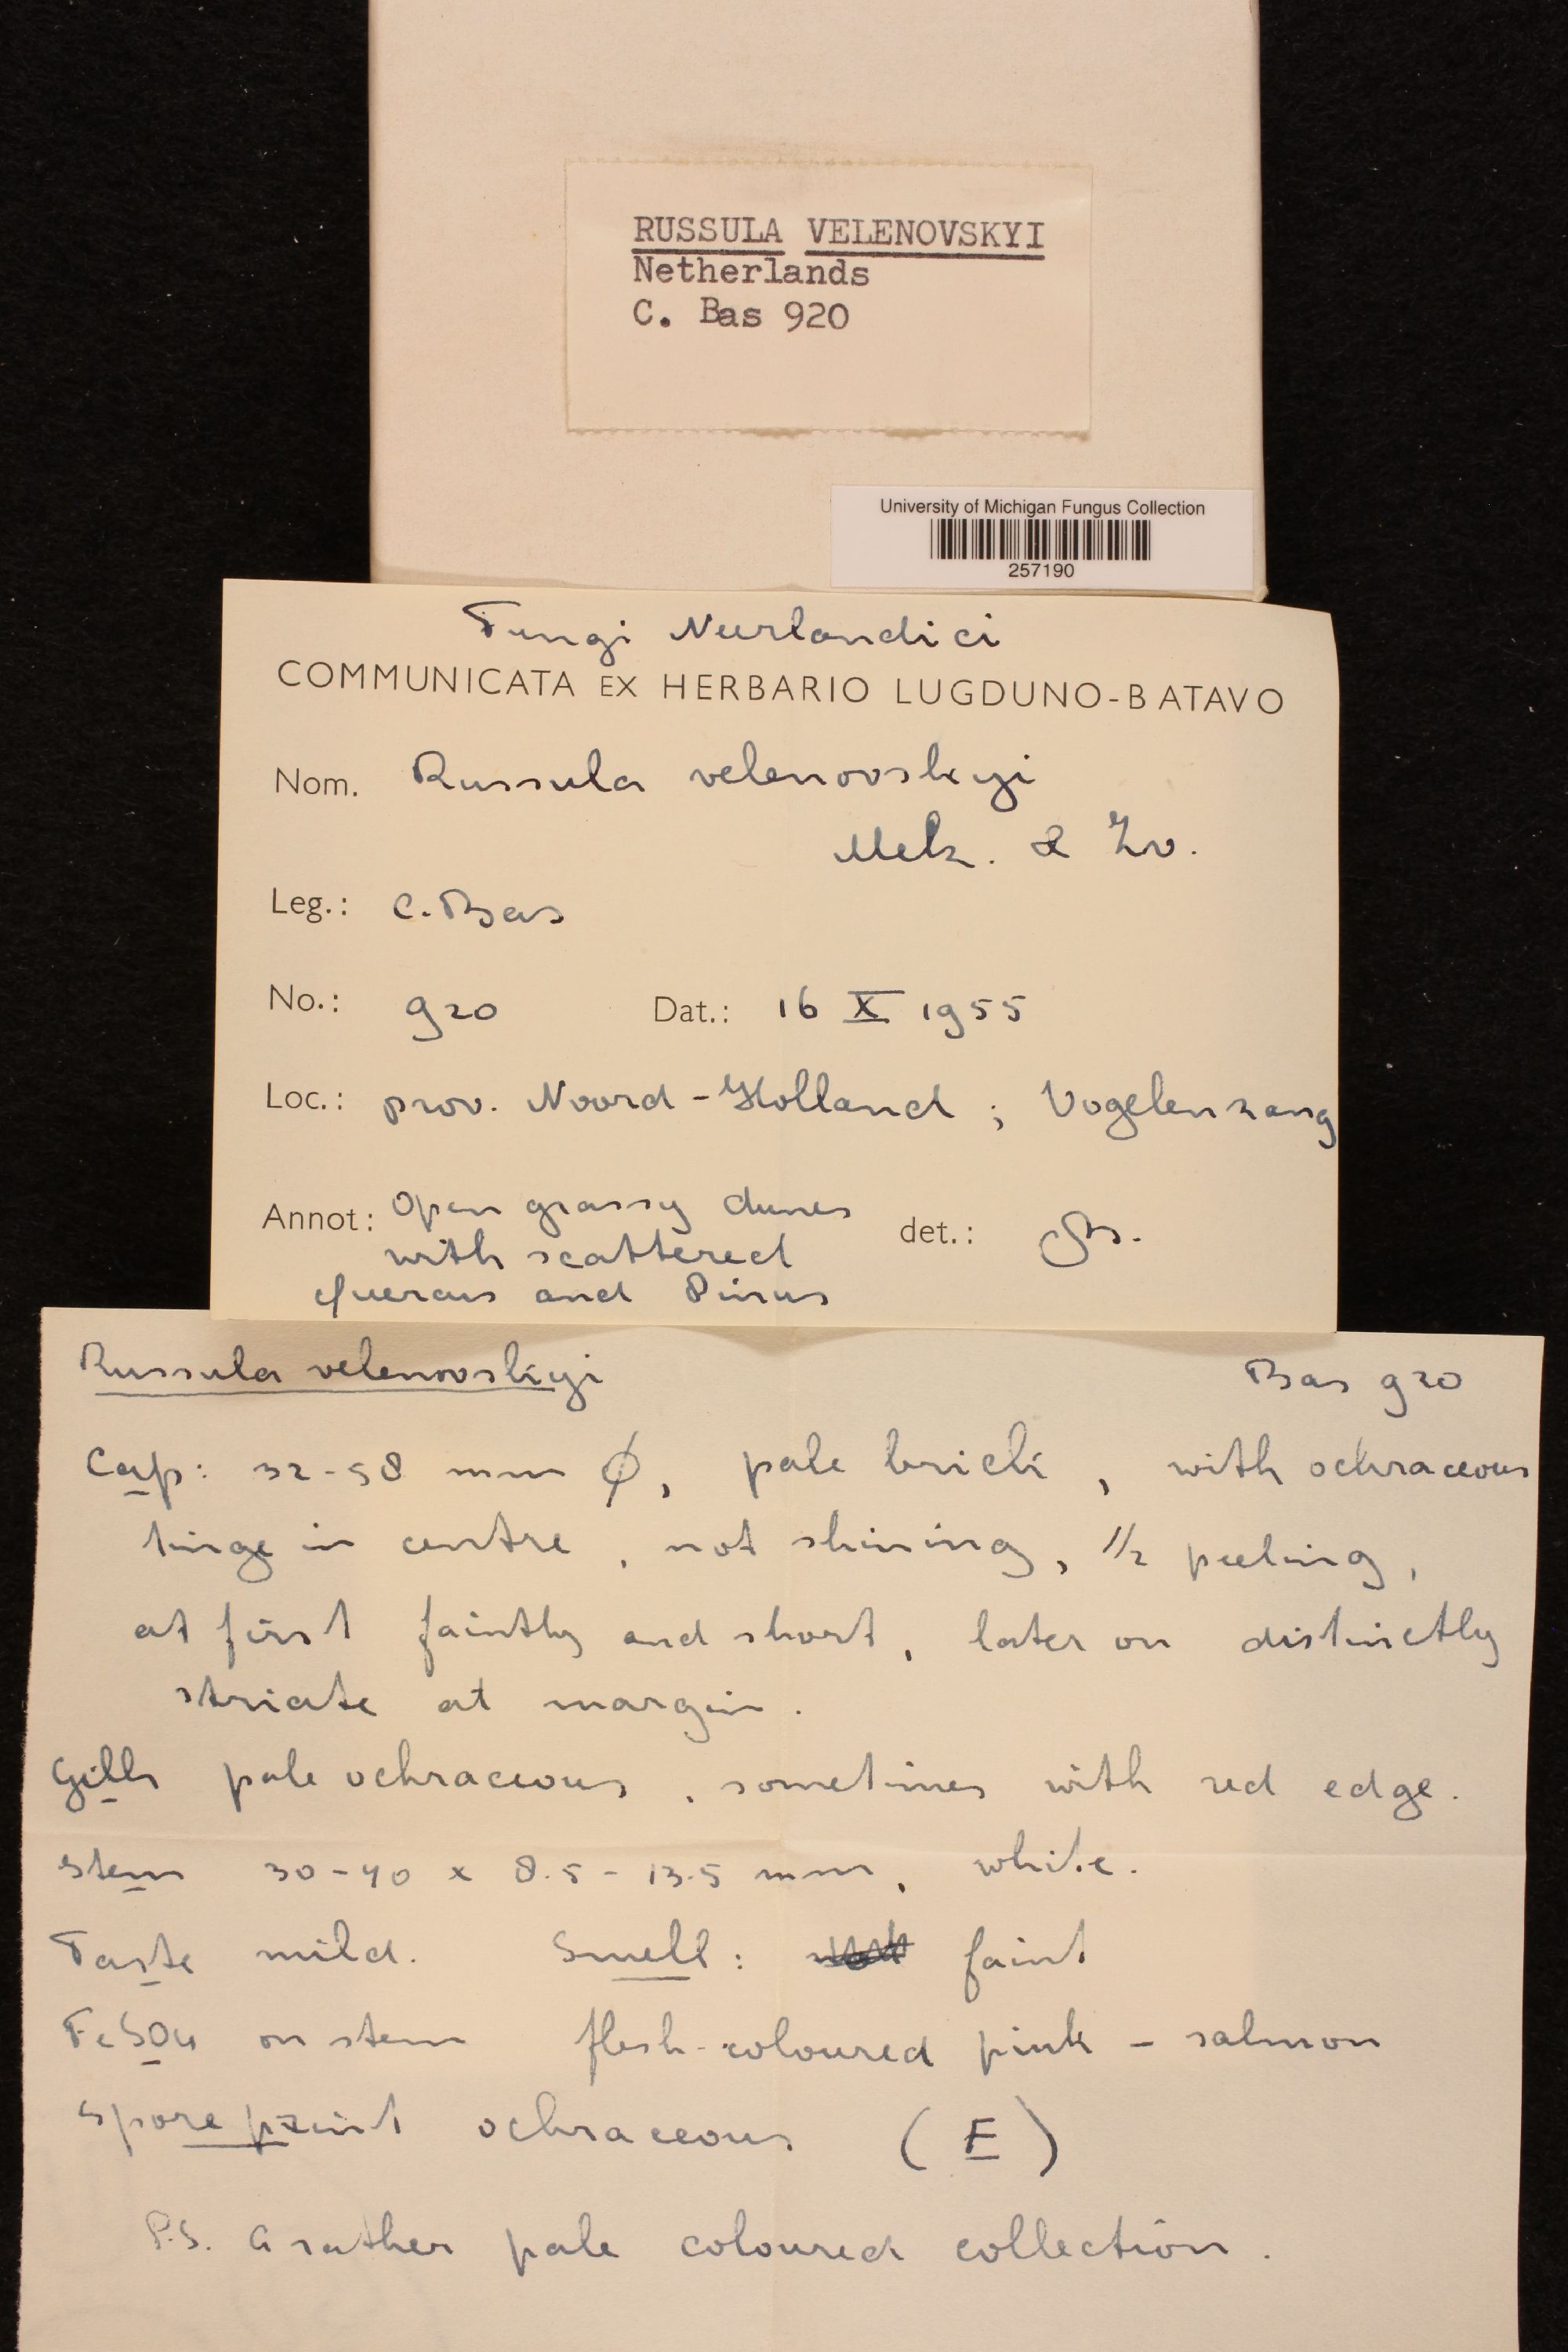 RUSSULA VELENOVSKYI
Netherlands
C. Bas 920
University of Michigan Fungus Collection
257190
Fungi Neerlandici
COMMUNICATA EX HERBARIO LUGDUNO-BATAVO
Nom. Russula velenovskyi
Melz. & Zv.
Leg.: C. Bas
No.: 920 Dat.: 16 X 1955
Loc.: prov. Noord-Holland ; Vogelenzang
Annot: Open grassy dunes
with scattered det.: CB.
Quercus and Pinus
Russula velenovskyi Bas 920
Cap: 32-58 mm Ø, pale brick, with ochraceous
tinge in centre, not shining, 1/2 peeling,
at first faintly and short, later on distinctly
striate at margin.
Gills pale ochraceous, sometimes with red edge.
Stem 30-40 x 8.5-13.5 mm, white.
Taste mild. Smell: faint
FeSO4 on stem flesh-coloured pink - salmon
Spore print ochraceous (E)
P.S. a rather pale coloured collection.